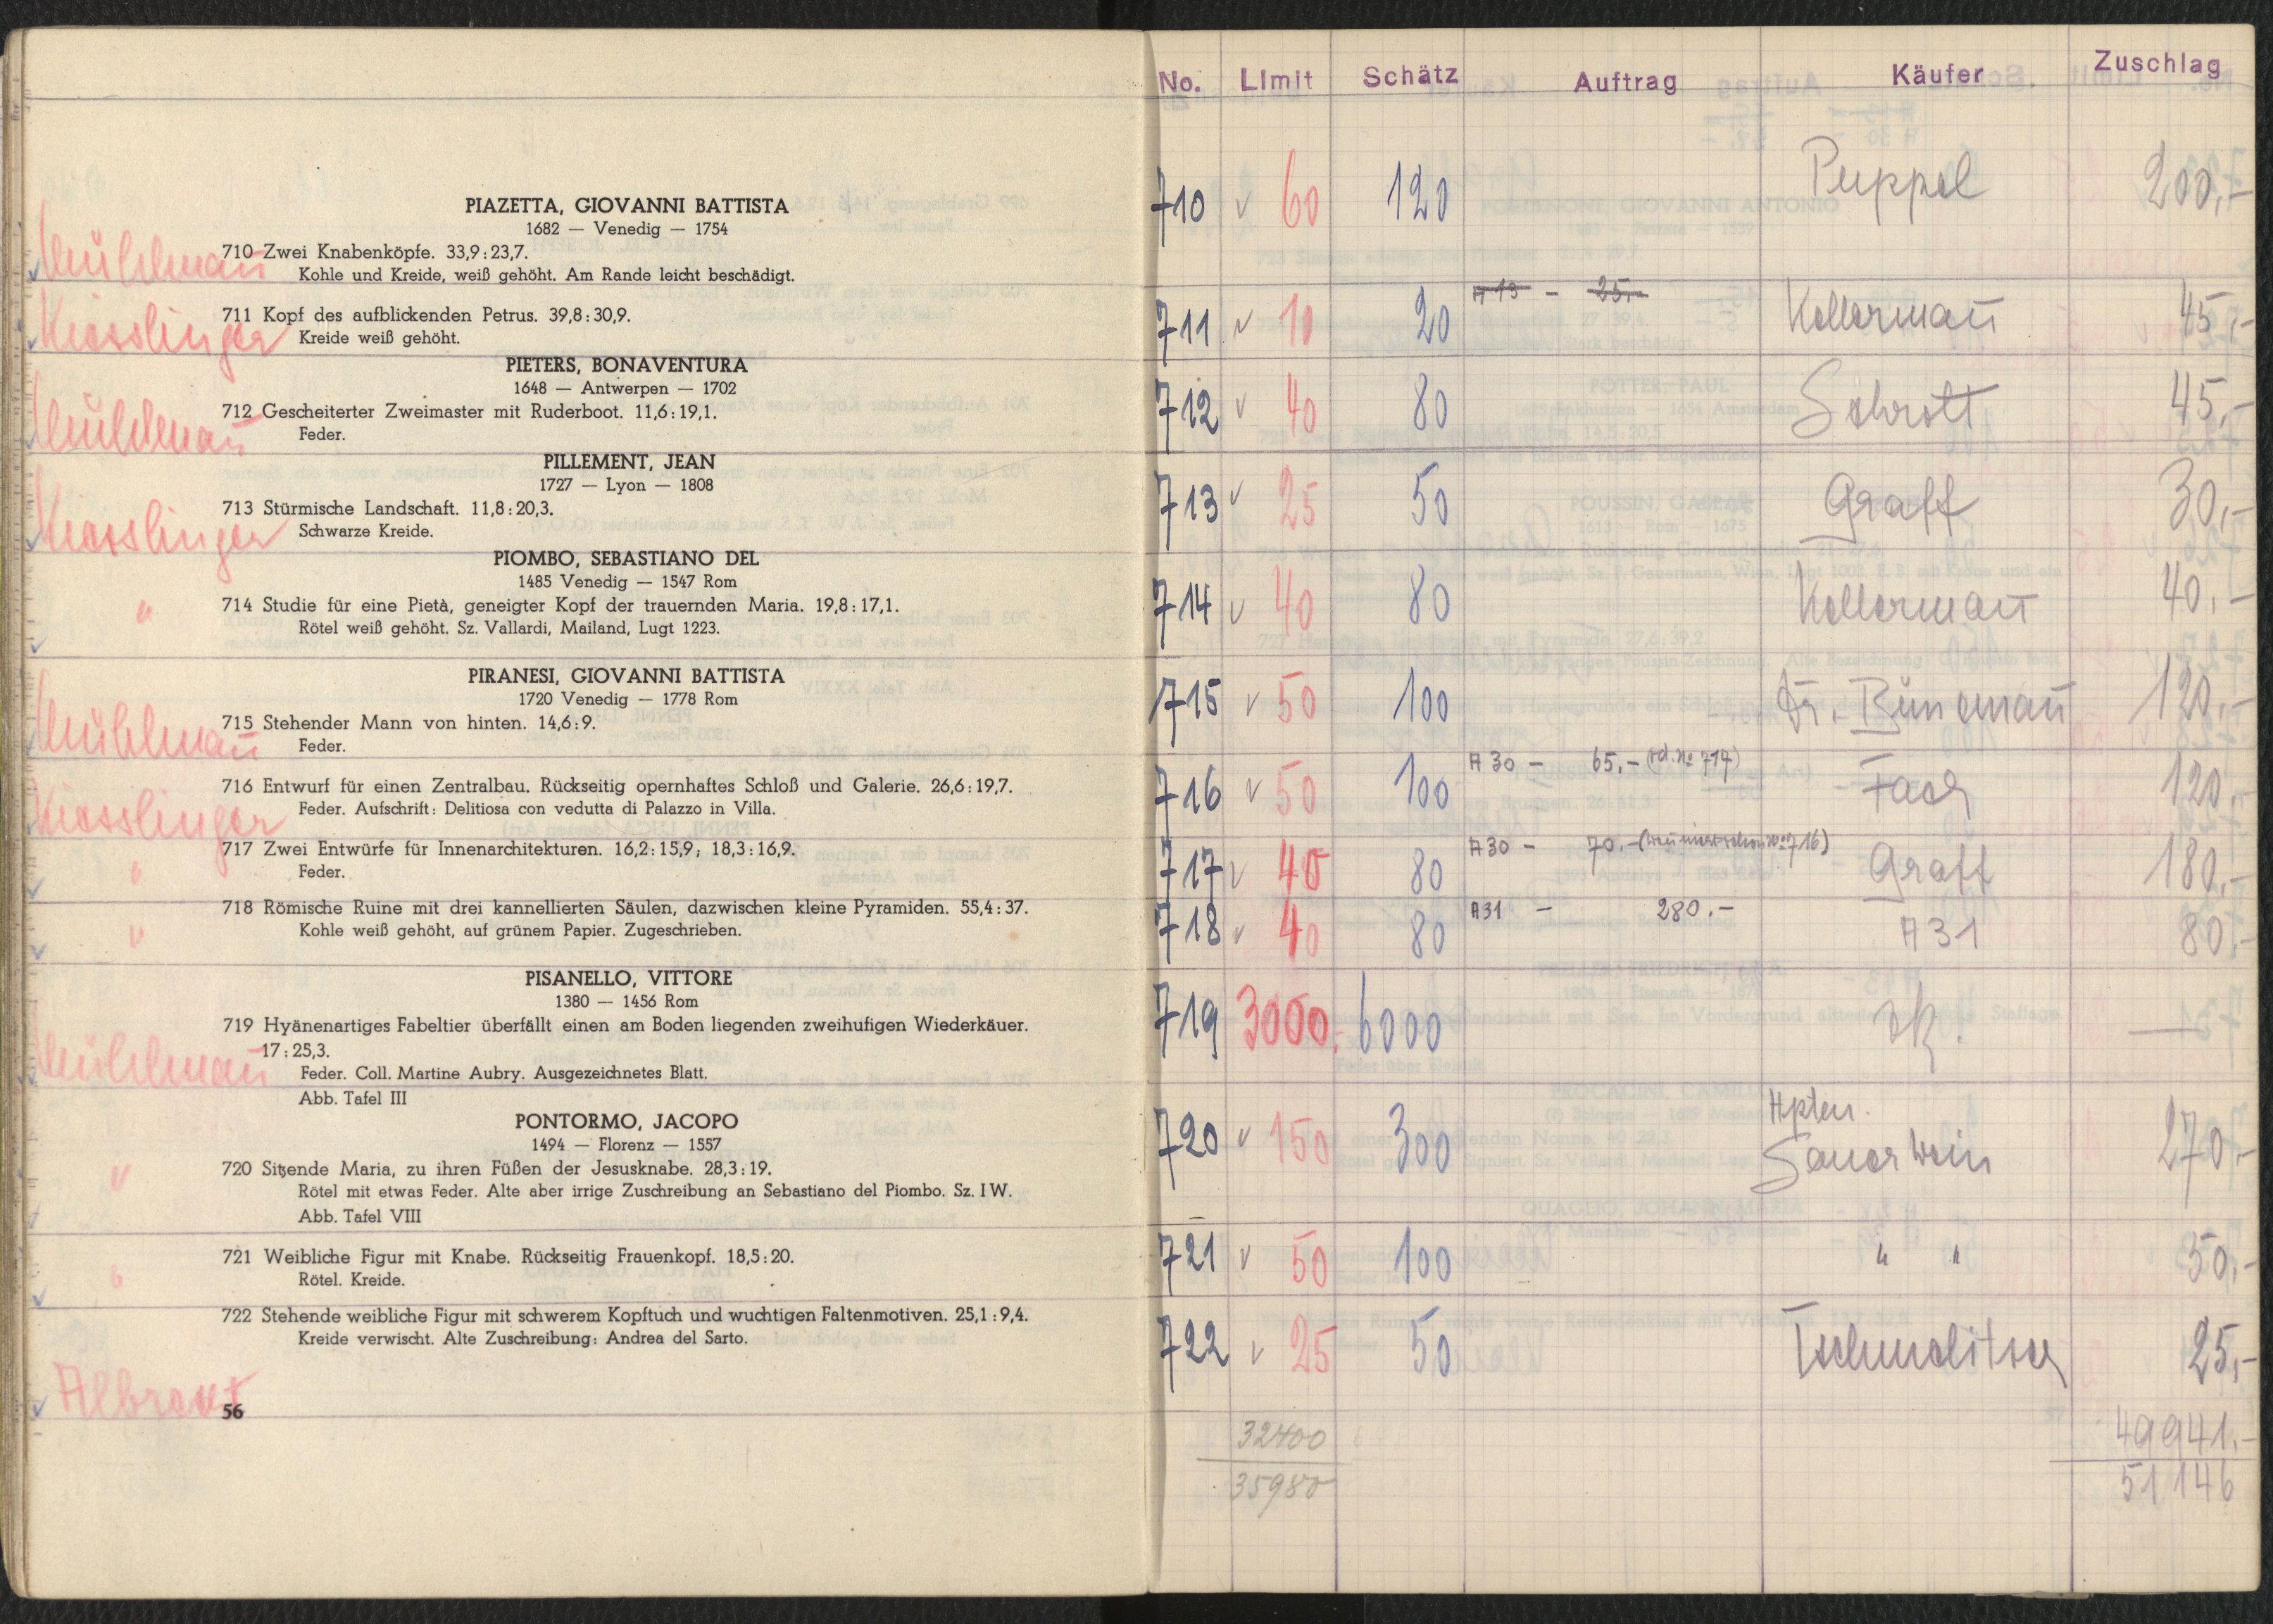 PIAZETTA, GIOVANNI BATTISTA
1682 — Venedig — 1754
Mühlmann
710 Zwei Knabenköpfe. 33,9 : 23,7.
Kohle und Kreide, weiß gehöht. Am Rande leicht beschädigt.
Kiesslinger
711 Kopf des aufblickenden Petrus. 39,8 : 30,9.
Kreide weiß gehöht.
PIETERS, BONAVENTURA
1648 — Antwerpen — 1702
Mühlmann
712 Gescheiterter Zweimaster mit Ruderboot. 11,6 : 19,1.
Feder.
PILLEMENT, JEAN
1727 — Lyon — 1808
Kiesslinger
713 Stürmische Landschaft. 11,8 : 20,3.
Schwarze Kreide.
PIOMBO, SEBASTIANO DEL
1485 Venedig — 1547 Rom
"
714 Studie für eine Pietà, geneigter Kopf der trauernden Maria. 19,8 : 17,1.
Rötel weiß gehöht. Sz. Vallardi, Mailand, Lugt 1223.
PIRANESI, GIOVANNI BATTISTA
1720 Venedig — 1778 Rom
Mühlmann
715 Stehender Mann von hinten. 14,6 : 9.
Feder.
Kiesslinger
716 Entwurf für einen Zentralbau. Rückseitig opernhaftes Schloß und Galerie. 26,6 : 19,7.
Feder. Aufschrift: Delitiosa con vedutta di Palazzo in Villa.
"
717 Zwei Entwürfe für Innenarchitekturen. 16,2 : 15,9; 18,3 : 16,9.
Feder.
"
718 Römische Ruine mit drei kannellierten Säulen, dazwischen kleine Pyramiden. 55,4 : 37.
Kohle weiß gehöht, auf grünem Papier. Zugeschrieben.
PISANELLO, VITTORE
1380 — 1456 Rom
719 Hyänenartiges Fabeltier überfällt einen am Boden liegenden zweihufigen Wiederkäuer.
17 : 25,3.
Mühlmann
Feder. Coll. Martine Aubry. Ausgezeichnetes Blatt.
Abb. Tafel III
PONTORMO, JACOPO
1494 — Florenz — 1557
"
720 Sitzende Maria, zu ihren Füßen der Jesusknabe. 28,3 : 19.
Rötel mit etwas Feder. Alte aber irrige Zuschreibung an Sebastiano del Piombo. Sz. I W.
Abb. Tafel VIII
"
721 Weibliche Figur mit Knabe. Rückseitig Frauenkopf. 18,5 : 20.
Rötel. Kreide.
722 Stehende weibliche Figur mit schwerem Kopftuch und wuchtigen Faltenmotiven. 25,1 : 9,4.
Kreide verwischt. Alte Zuschreibung: Andrea del Sarto.
56
No. Limit Schätz Auftrag Käufer Zuschlag
710 v 60 120 Puppel 200,-
711 v 10 20 A 13 - 25,- Kellermann 45,-
712 v 40 80 Schrott 45,-
713 v 25 50 Graff 30,-
714 v 40 80 Kellermann 40,-
715 v 50 100 Dr. Bünemann 120,-
716 v 50 100 A 30 - 65,- 120,-
717 v 40 80 A 30 - 70,- Graff 180,-
718 v 40 80 A 31 - 280.- A 31 80,-
719 3000. 6000
720 v 150 300 Hptm. Sauerwein 270,-
721 v 50 100 " " 50,-
722 v 25 50 25,-
32400 49941.-
35980 51146